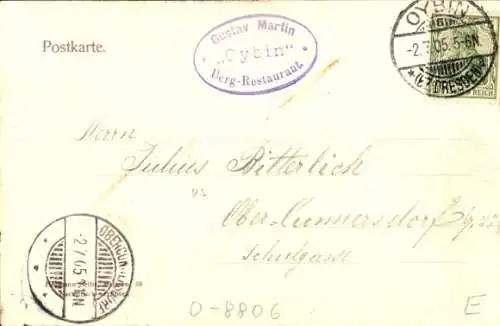 Postkarte.
Gustav Martin
„Oybin"
Berg-Restaurant
OYBIN
-2.7.05.5-6N
REICH
Herrn
Julius Bitterlich
Ober-Cunnersdorf
Schulgasse
-2.7.05
D-8806
E